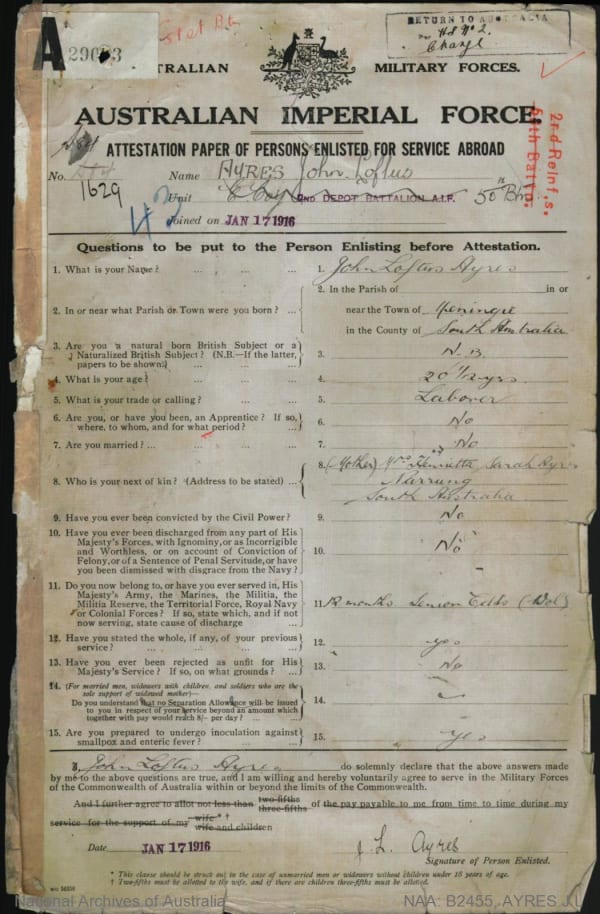 A
RETURN TO AUSTRALIA
AUSTRALIAN MILITARY FORCES.
AUSTRALIAN IMPERIAL FORCE.
2nd Reinf,s.
ATTESTATION PAPER OF PERSONS ENLISTED FOR SERVICE ABROAD
No. 1629 Name AYRES John Loftus
Unit 2ND DEPOT BATTALION A.I.F. 50th Btn
Joined on JAN 17 1916
Questions to be put to the Person Enlisting before Attestation.
1. What is your Name? ... ... ... 1. John Loftus Ayres
2. In or near what Parish or Town were you born? ... 2. In the Parish of in or
near the Town of Meningie
in the County of South Australia
3. Are you a natural born British Subject or a
Naturalized British Subject? (N.B.—If the latter,
papers to be shown) 3. N.B.
4. What is your age? ... 4. 20 1/2 yrs.
5. What is your trade or calling? ... 5. Laborer
6. Are you, or have you been, an Apprentice? If so,
where, to whom, and for what period? ... 6. No
7. Are you married? ... 7. No
8. Who is your next of kin? (Address to be stated) ... 8. (Mother) Mrs Henrietta Sarah Ayres
Narrung
South Australia
9. Have you ever been convicted by the Civil Power? 9. No
10. Have you ever been discharged from any part of His
Majesty's Forces, with Ignominy, or as Incorrigible
and Worthless, or on account of Conviction of
Felony, or of a Sentence of Penal Servitude, or have
you been dismissed with disgrace from the Navy? 10. No
11. Do you now belong to, or have you ever served in, His
Majesty's Army, the Marines, the Militia, the
Militia Reserve, the Territorial Force, Royal Navy
or Colonial Forces? If so, state which, and if not
now serving, state cause of discharge ... 11. 12 months Senior Cdts
12. Have you stated the whole, if any, of your previous
service? ... 12. yes
13. Have you ever been rejected as unfit for His
Majesty's Service? If so, on what grounds? ... 13. No
14. (For married men, widowers with children, and soldiers who are the
sole support of widowed mother)—
Do you understand that no Separation Allowance will be issued
to you in respect of your service beyond an amount which
together with pay would reach 8/- per day? ... 14.
15. Are you prepared to undergo inoculation against
smallpox and enteric fever? ... 15. Yes
I, John Loftus Ayres do solemnly declare that the above answers made
by me to the above questions are true, and I am willing and hereby voluntarily agree to serve in the Military Forces
of the Commonwealth of Australia within or beyond the limits of the Commonwealth.
And I further agree to allot not less than two-fifths three-fifths of the pay payable to me from time to time during my
service for the support of my wife * † wife and children
Date JAN 17 1916 J. L. Ayres
Signature of Person Enlisted.
* This clause should be struck out in the case of unmarried men or widowers without children under 18 years of age.
† Two-fifths must be allotted to the wife, and if there are children three-fifths must be allotted.
National Archives of Australia NAA: B2455, AYRES J L